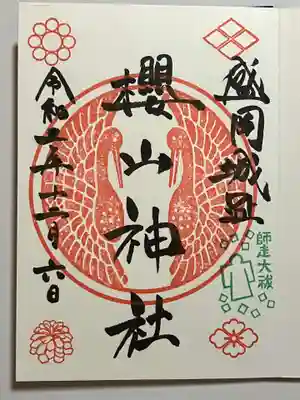 盛岡城址
師走大祓
櫻山神社
令和五年十二月六日